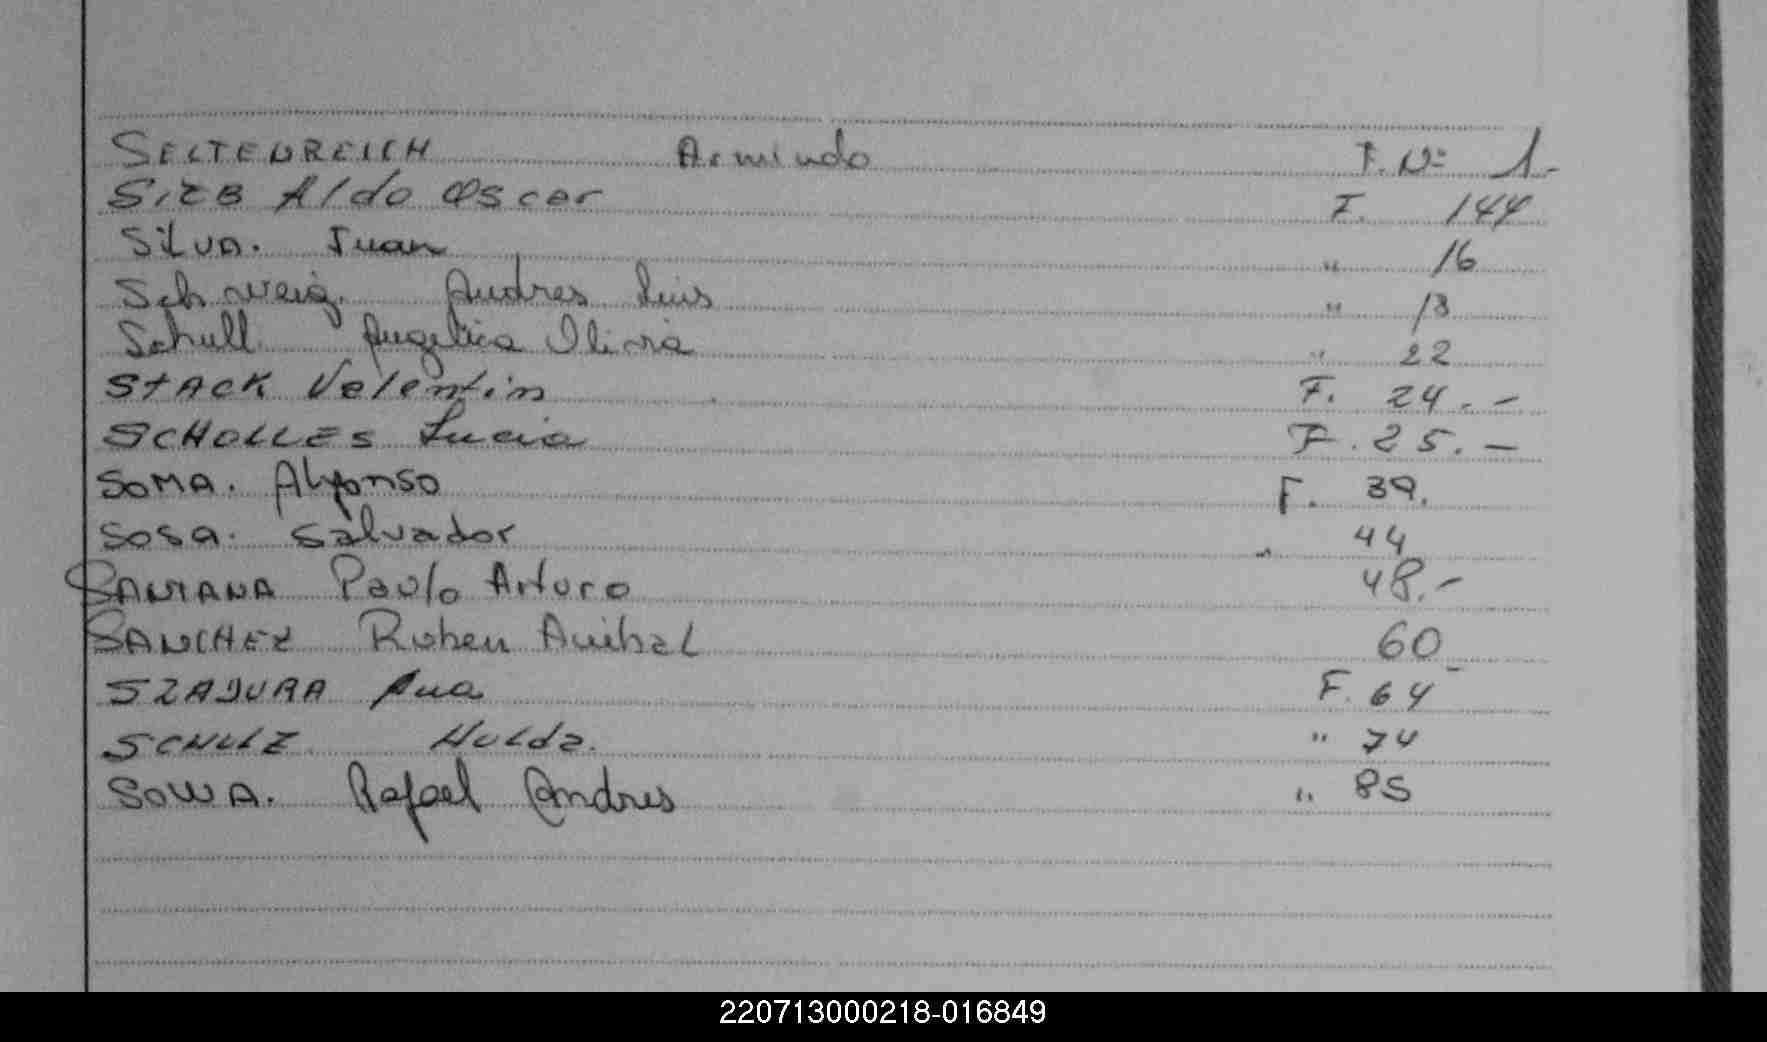 SELTENREICH Armindo F. Nº 1.-
SIEB Aldo Oscar F. 144
SILVA. Juan " 16
Schweig. Andres Luis " 13
Schull Angelica Olivia " 22
STACK Valentin F. 24.-
SCHOLLES Lucia F. 25.-
SOMA. Alfonso F. 39.
SOSA. Salvador " 44
SANTANA Paulo Arturo 48.-
SANCHEZ Ruben Anibal 60.-
SZADURA Ana F. 64
SCHULZ Hulda. " 74
SOWA. Rafael Andres " 85
220713000218-016849